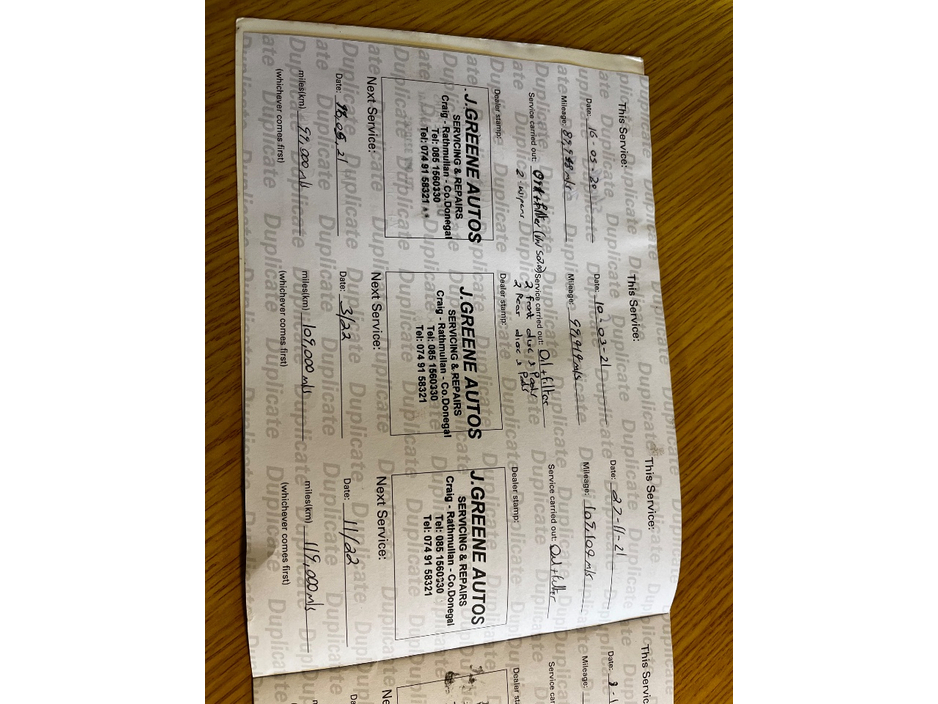 This Service:
Date: 16-05-20
Mileage: 89,998 mls
Service carried out: Oil + Filter
2 wipers
Dealer stamp:
J.GREENE AUTOS
SERVICING & REPAIRS
Craig - Rathmullan - Co.Donegal
Tel: 085 1560330
Tel: 074 91 58321
Next Service:
Date: 21
miles(km) 99,000 mls
(whichever comes first)
This Service:
Date: 10-03-21
Mileage: 99,949 mls
Service carried out: Oil + filter
2 front discs & Pads
2 Rear discs & Pads
Dealer stamp:
J.GREENE AUTOS
SERVICING & REPAIRS
Craig - Rathmullan - Co.Donegal
Tel: 085 1560330
Tel: 074 91 58321
Next Service:
Date: 3/22
miles(km) 109,000 mls
(whichever comes first)
This Service:
Date: 27-11-21
Mileage: 109,109 mls
Service carried out: Oil + filter
Dealer stamp:
J.GREENE AUTOS
SERVICING & REPAIRS
Craig - Rathmullan - Co.Donegal
Tel: 085 1560330
Tel: 074 91 58321
Next Service:
Date: 11/22
miles(km) 119,000 mls
(whichever comes first)
This Servic
Date:
Mileage:
Service car
Dealer st
Ne
Da
Duplicate